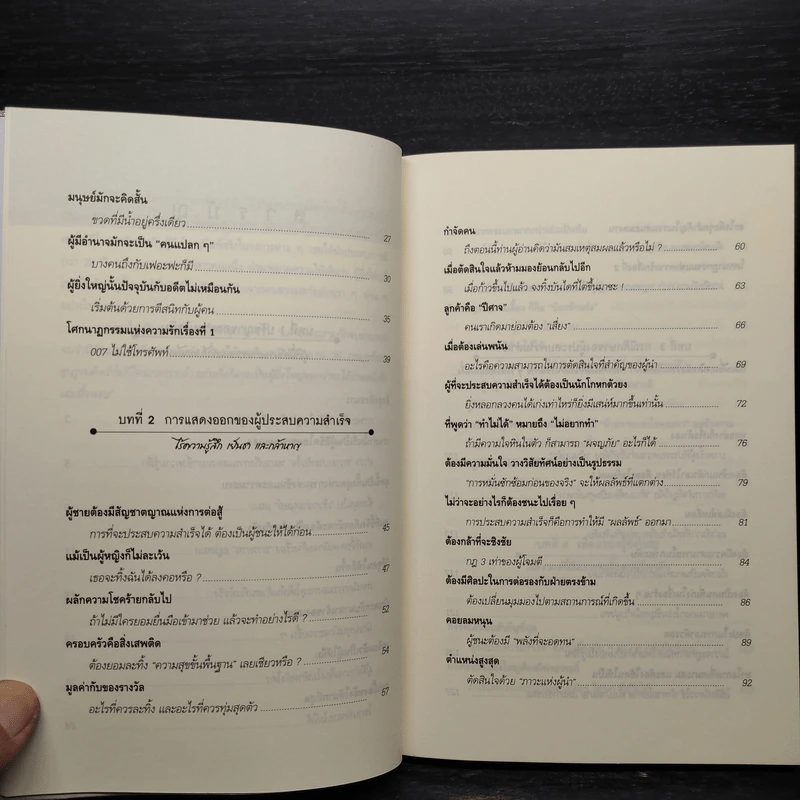 มนุษย์มักจะคิดสั้น
ขวดที่มีน้ำอยู่ครึ่งเดียว 27
ผู้มีอำนาจมักจะเป็น "คนแปลก ๆ"
บางคนถึงกับเฟอะฟะก็มี 30
ผู้ยิ่งใหญ่นั้นปัจจุบันกับอดีตไม่เหมือนกัน
เริ่มต้นด้วยการตีสนิทกับผู้คน 35
โศกนาฏกรรมแห่งความรักเรื่องที่ 1
007 ไม่ใช้โทรศัพท์ 39
บทที่ 2 การแสดงออกของผู้ประสบความสำเร็จ
ไร้ความรู้สึก เย็นชา และกล้าหาญ
ผู้ชายต้องมีสัญชาตญาณแห่งการต่อสู้
การที่จะประสบความสำเร็จได้ ต้องเป็นผู้ชนะให้ได้ก่อน 45
แม้เป็นผู้หญิงก็ไม่ละเว้น
เธอจะทิ้งฉันได้ลงคอหรือ ? 47
ผลักความโชคร้ายกลับไป
ถ้าไม่มีใครยอมยื่นมือเข้ามาช่วย แล้วจะทำอย่างไรดี ? 52
ครอบครัวคือสิ่งเสพติด
ต้องยอมละทิ้ง "ความสุขขั้นพื้นฐาน" เลยเชียวหรือ ? 54
มูลค่ากับของรางวัล
อะไรที่ควรละทิ้ง และอะไรที่ควรทุ่มสุดตัว 57
กำจัดคน
ถึงตอนนี้ท่านผู้อ่านคิดว่ามันสมเหตุสมผลแล้วหรือไม่ ? 60
เมื่อตัดสินใจแล้วห้ามมองย้อนกลับไปอีก
เมื่อก้าวขึ้นไปแล้ว จงทิ้งบันไดที่ไต่ขึ้นมาซะ ! 63
ลูกค้าคือ "ปีศาจ"
คนเราเกิดมาย่อมต้อง "เสี่ยง" 66
เมื่อต้องเล่นพนัน
อะไรคือความสามารถในการตัดสินใจที่สำคัญของผู้นำ 69
ผู้ที่จะประสบความสำเร็จได้ต้องเป็นนักโกหกตัวยง
ยิ่งหลอกลวงคนได้เก่งเท่าไหร่ก็ยิ่งมีเสน่ห์มากขึ้นเท่านั้น 72
ที่พูดว่า "ทำไม่ได้" หมายถึง "ไม่อยากทำ"
ถ้ามีความใจหินในตัว ก็สามารถ "ผจญภัย" อะไรก็ได้ 76
ต้องมีความมั่นใจ วางวิสัยทัศน์อย่างเป็นรูปธรรม
"การหมั่นซักซ้อมก่อนของจริง" จะให้ผลลัพธ์ที่แตกต่าง 79
ไม่ว่าจะอย่างไรก็ต้องชนะไปเรื่อย ๆ
การประสบความสำเร็จก็คือการทำให้มี "ผลลัพธ์" ออกมา 81
ต้องกล้าที่จะชิงชัย
กฎ 3 เท่าของผู้โจมตี 84
ต้องมีศิลปะในการต่อรองกับฝ่ายตรงข้าม
ต้องเปลี่ยนมุมมองไปตามสถานการณ์ที่เกิดขึ้น 86
คอยลมหนุน
ผู้ชนะต้องมี "พลังที่จะอดทน" 89
ตำแหน่งสูงสุด
ตัดสินใจด้วย "ภาวะแห่งผู้นำ" 92